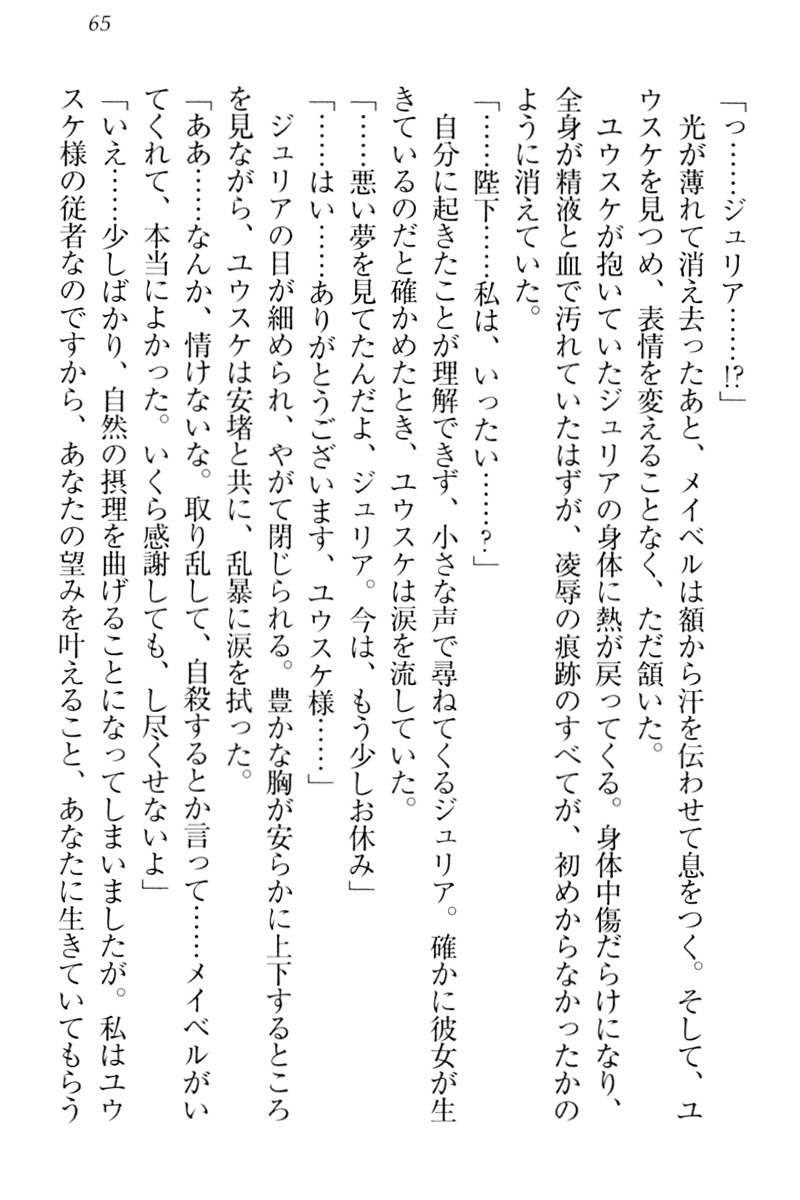 65
「っ……ジュリア……!?」
　光が薄れて消え去ったあと、メイベルは額から汗を伝わせて息をつく。そして、ユ
ウスケを見つめ、表情を変えることなく、ただ頷いた。
　ユウスケが抱いていたジュリアの身体に熱が戻ってくる。身体中傷だらけになり、
全身が精液と血で汚れていたはずが、凌辱の痕跡のすべてが、初めからなかったかの
ように消えていた。
「……陛下……私は、いったい……?」
　自分に起きたことが理解できず、小さな声で尋ねてくるジュリア。確かに彼女が生
きているのだと確かめたとき、ユウスケは涙を流していた。
「……悪い夢を見てたんだよ、ジュリア。今は、もう少しお休み」
「……はい……ありがとうございます、ユウスケ様……」
　ジュリアの目が細められ、やがて閉じられる。豊かな胸が安らかに上下するところ
を見ながら、ユウスケは安堵と共に、乱暴に涙を拭った。
「ああ……なんか、情けないな。取り乱して、自殺するとか言って……メイベルがい
てくれて、本当によかった。いくら感謝しても、し尽くせないよ」
「いえ……少しばかり、自然の摂理を曲げることになってしまいましたが。私はユウ
スケ様の従者なのですから、あなたの望みを叶えること、あなたに生きていてもらう